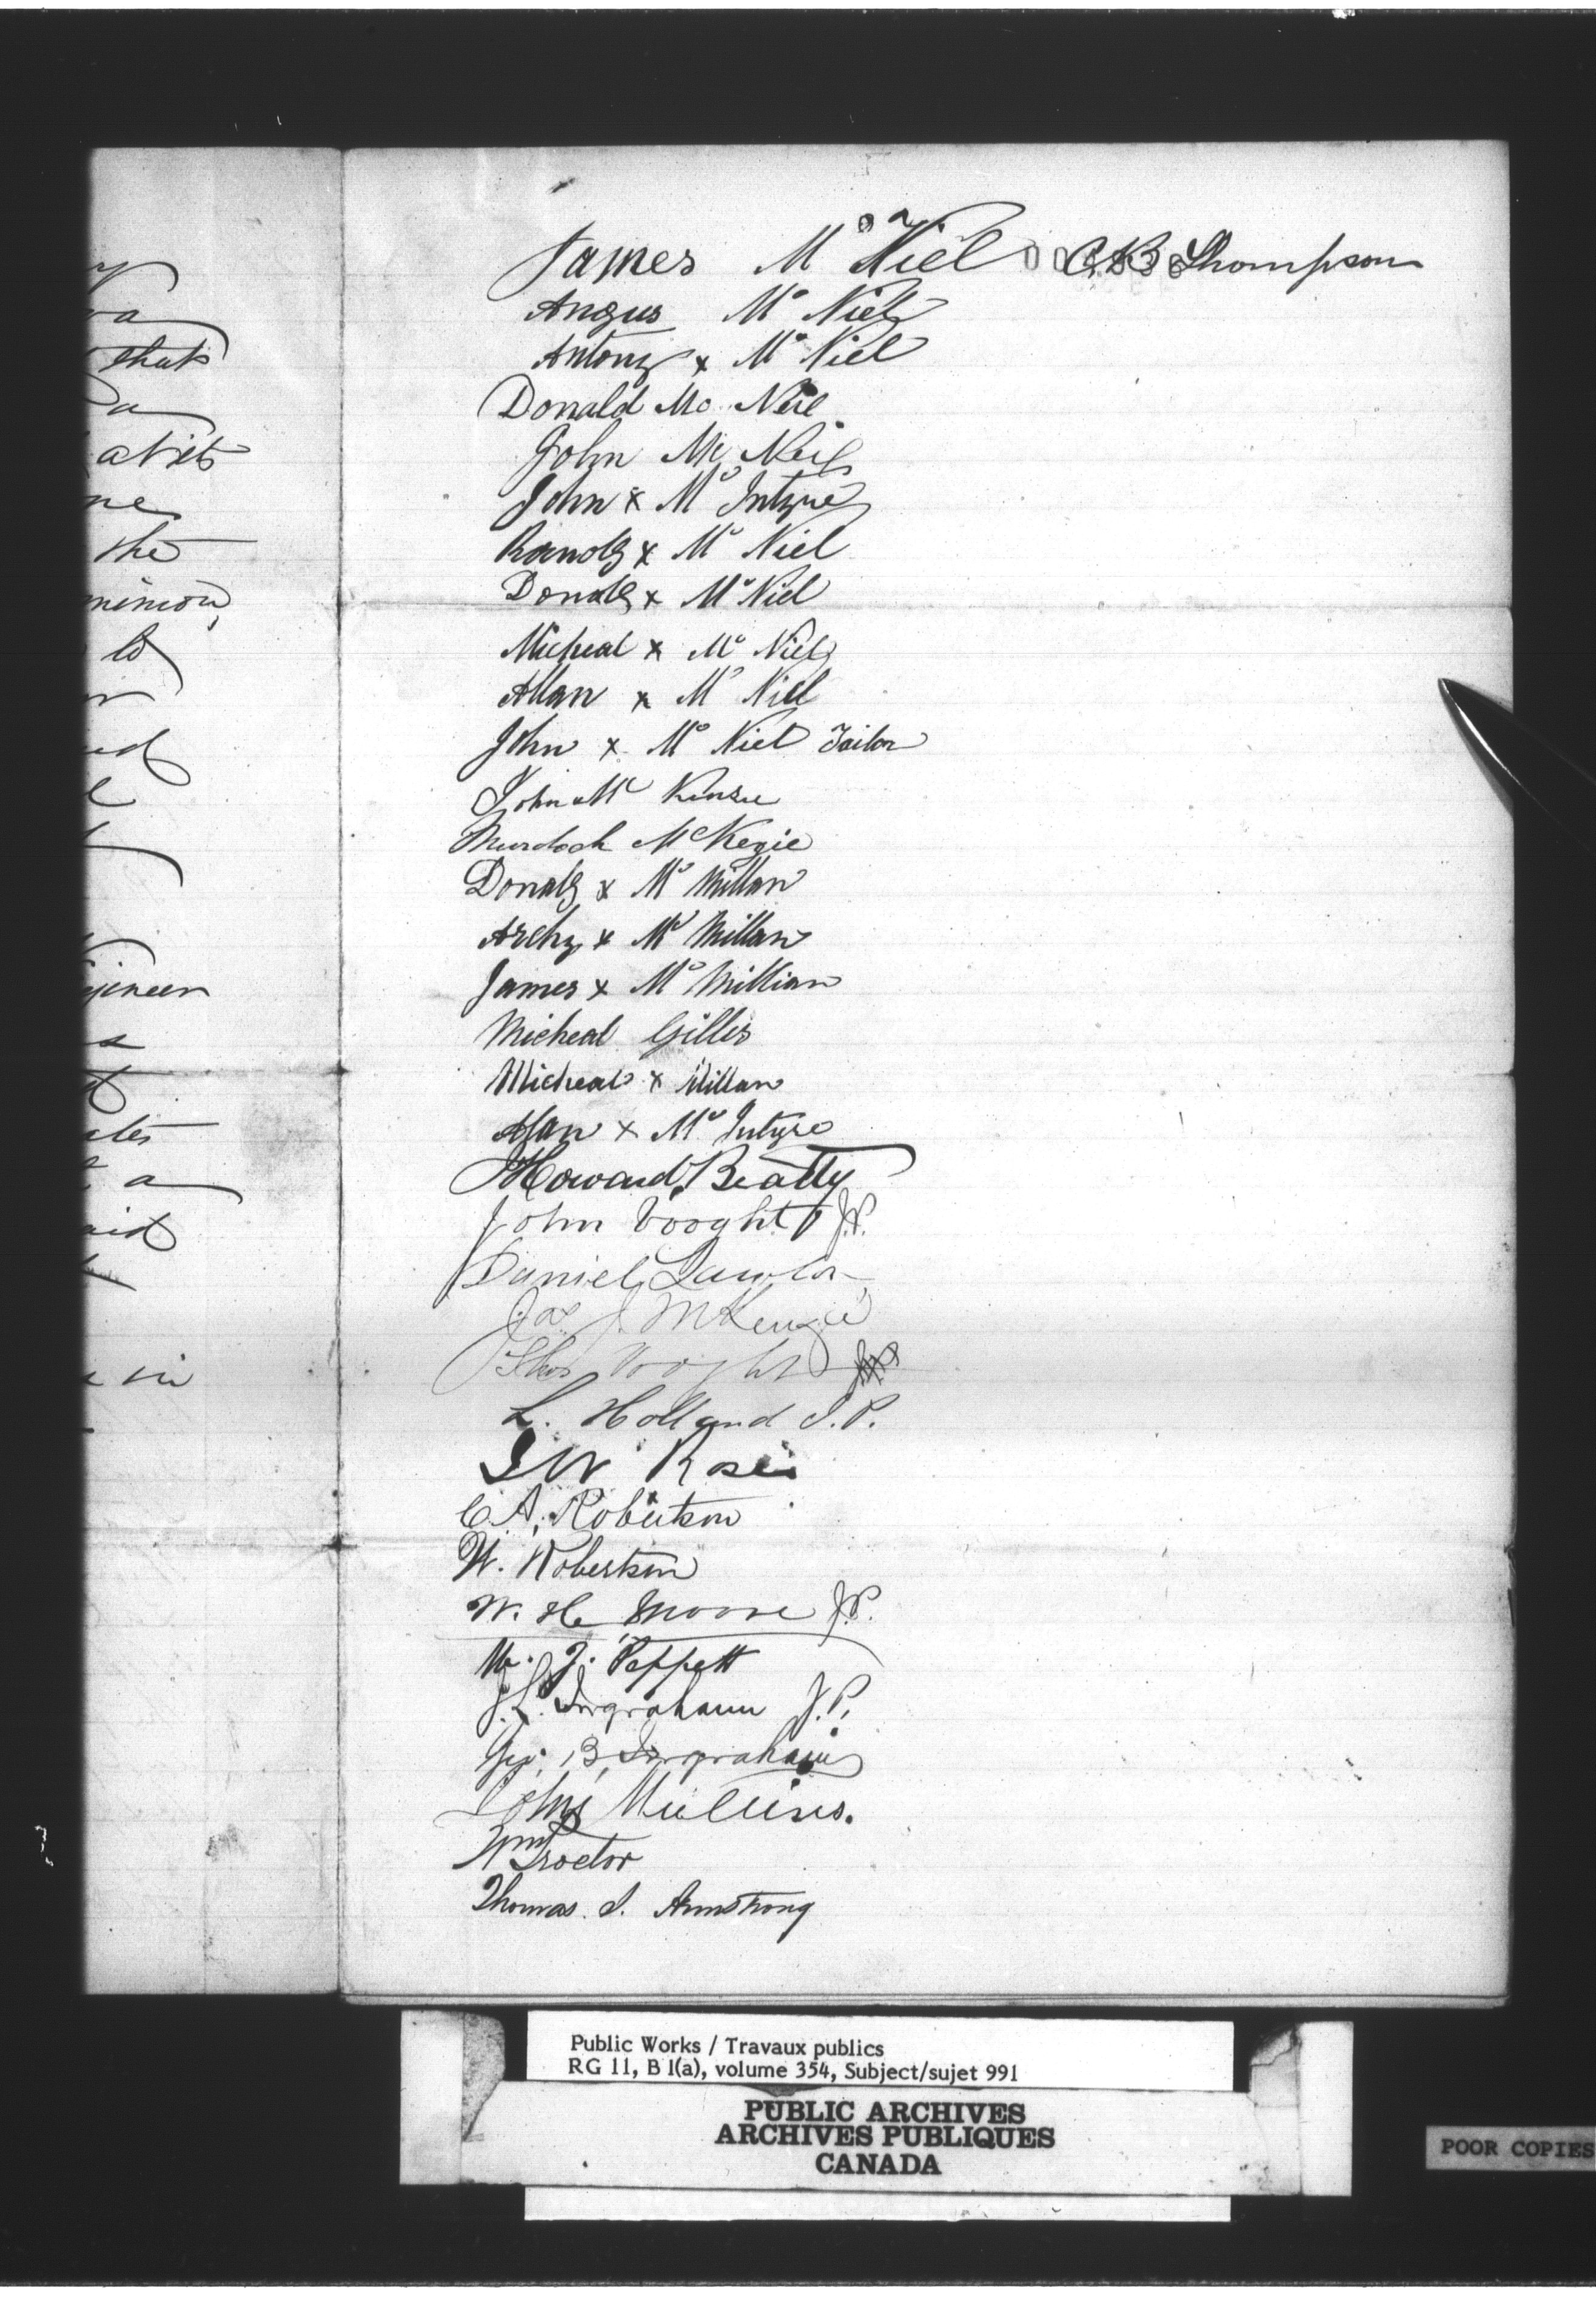 James Mc Niel C. B. Thompson
Angus Mc Niel
Antony x Mc Niel
Donald Mc Neil
John Mc Neil
John x Mc Intyre
Ranold x Mc Niel
Donald x Mc Niel
Micheal x Mc Niel
Allan x Mc Niel
John x Mc Niel Tailor
John Mc Kinzie
Murdock McKezie
Donald x Mc Millan
Archy x Mc Millan
James x Mc Millian
Micheal Gillis
Micheal x Millan
Allan x Mc Intyre
Howard Beatty
John Vooght J.P.
Daniel Lawlor
Jas J. McKenzie
Thos Vooght
L. Holland J.P.
J W Ross
C. A. Robertson
W. Robertson
W. H. Moore J.P.
J. Peppett
J. L. Ingraham J.P.
Geo. B. Ingraham
John Mullins.
Wm Proctor
Thomas J. Armstrong
va
that
a
ne
the
minion,
to
ed
gineer
a
aid
in
Public Works / Travaux publics
RG 11, B 1(a), volume 354, Subject/sujet 991
PUBLIC ARCHIVES
ARCHIVES PUBLIQUES
CANADA
POOR COPIES